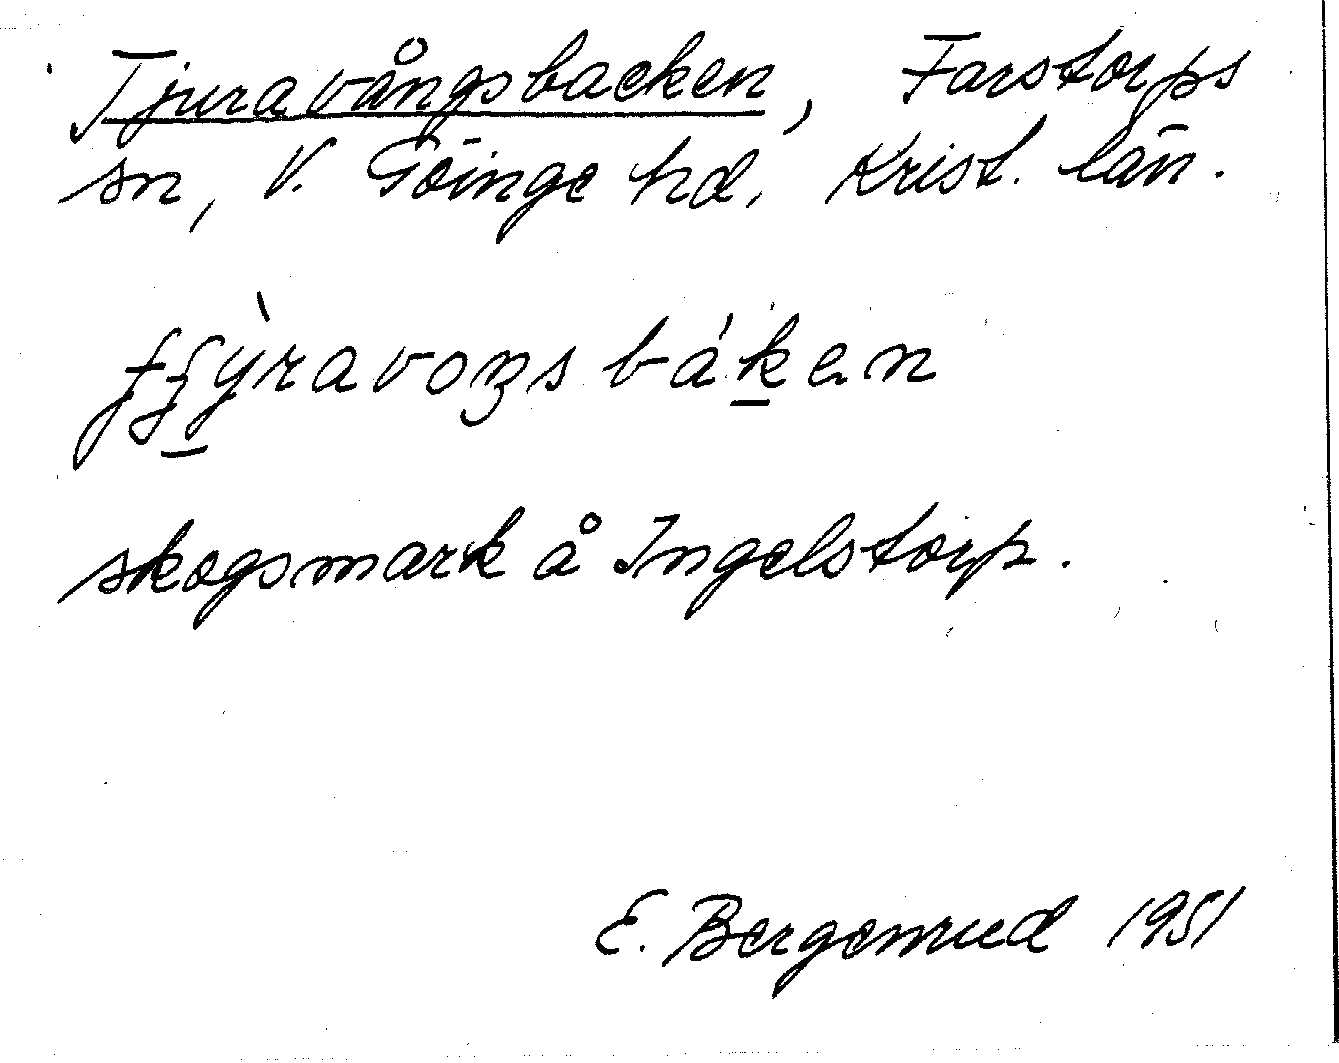 Tjuravångsbacken, Farstorps
sn, V. Göinge hd, Krist. län.
skogsmark å Ingelstorp.
E. Bergenrud 1951